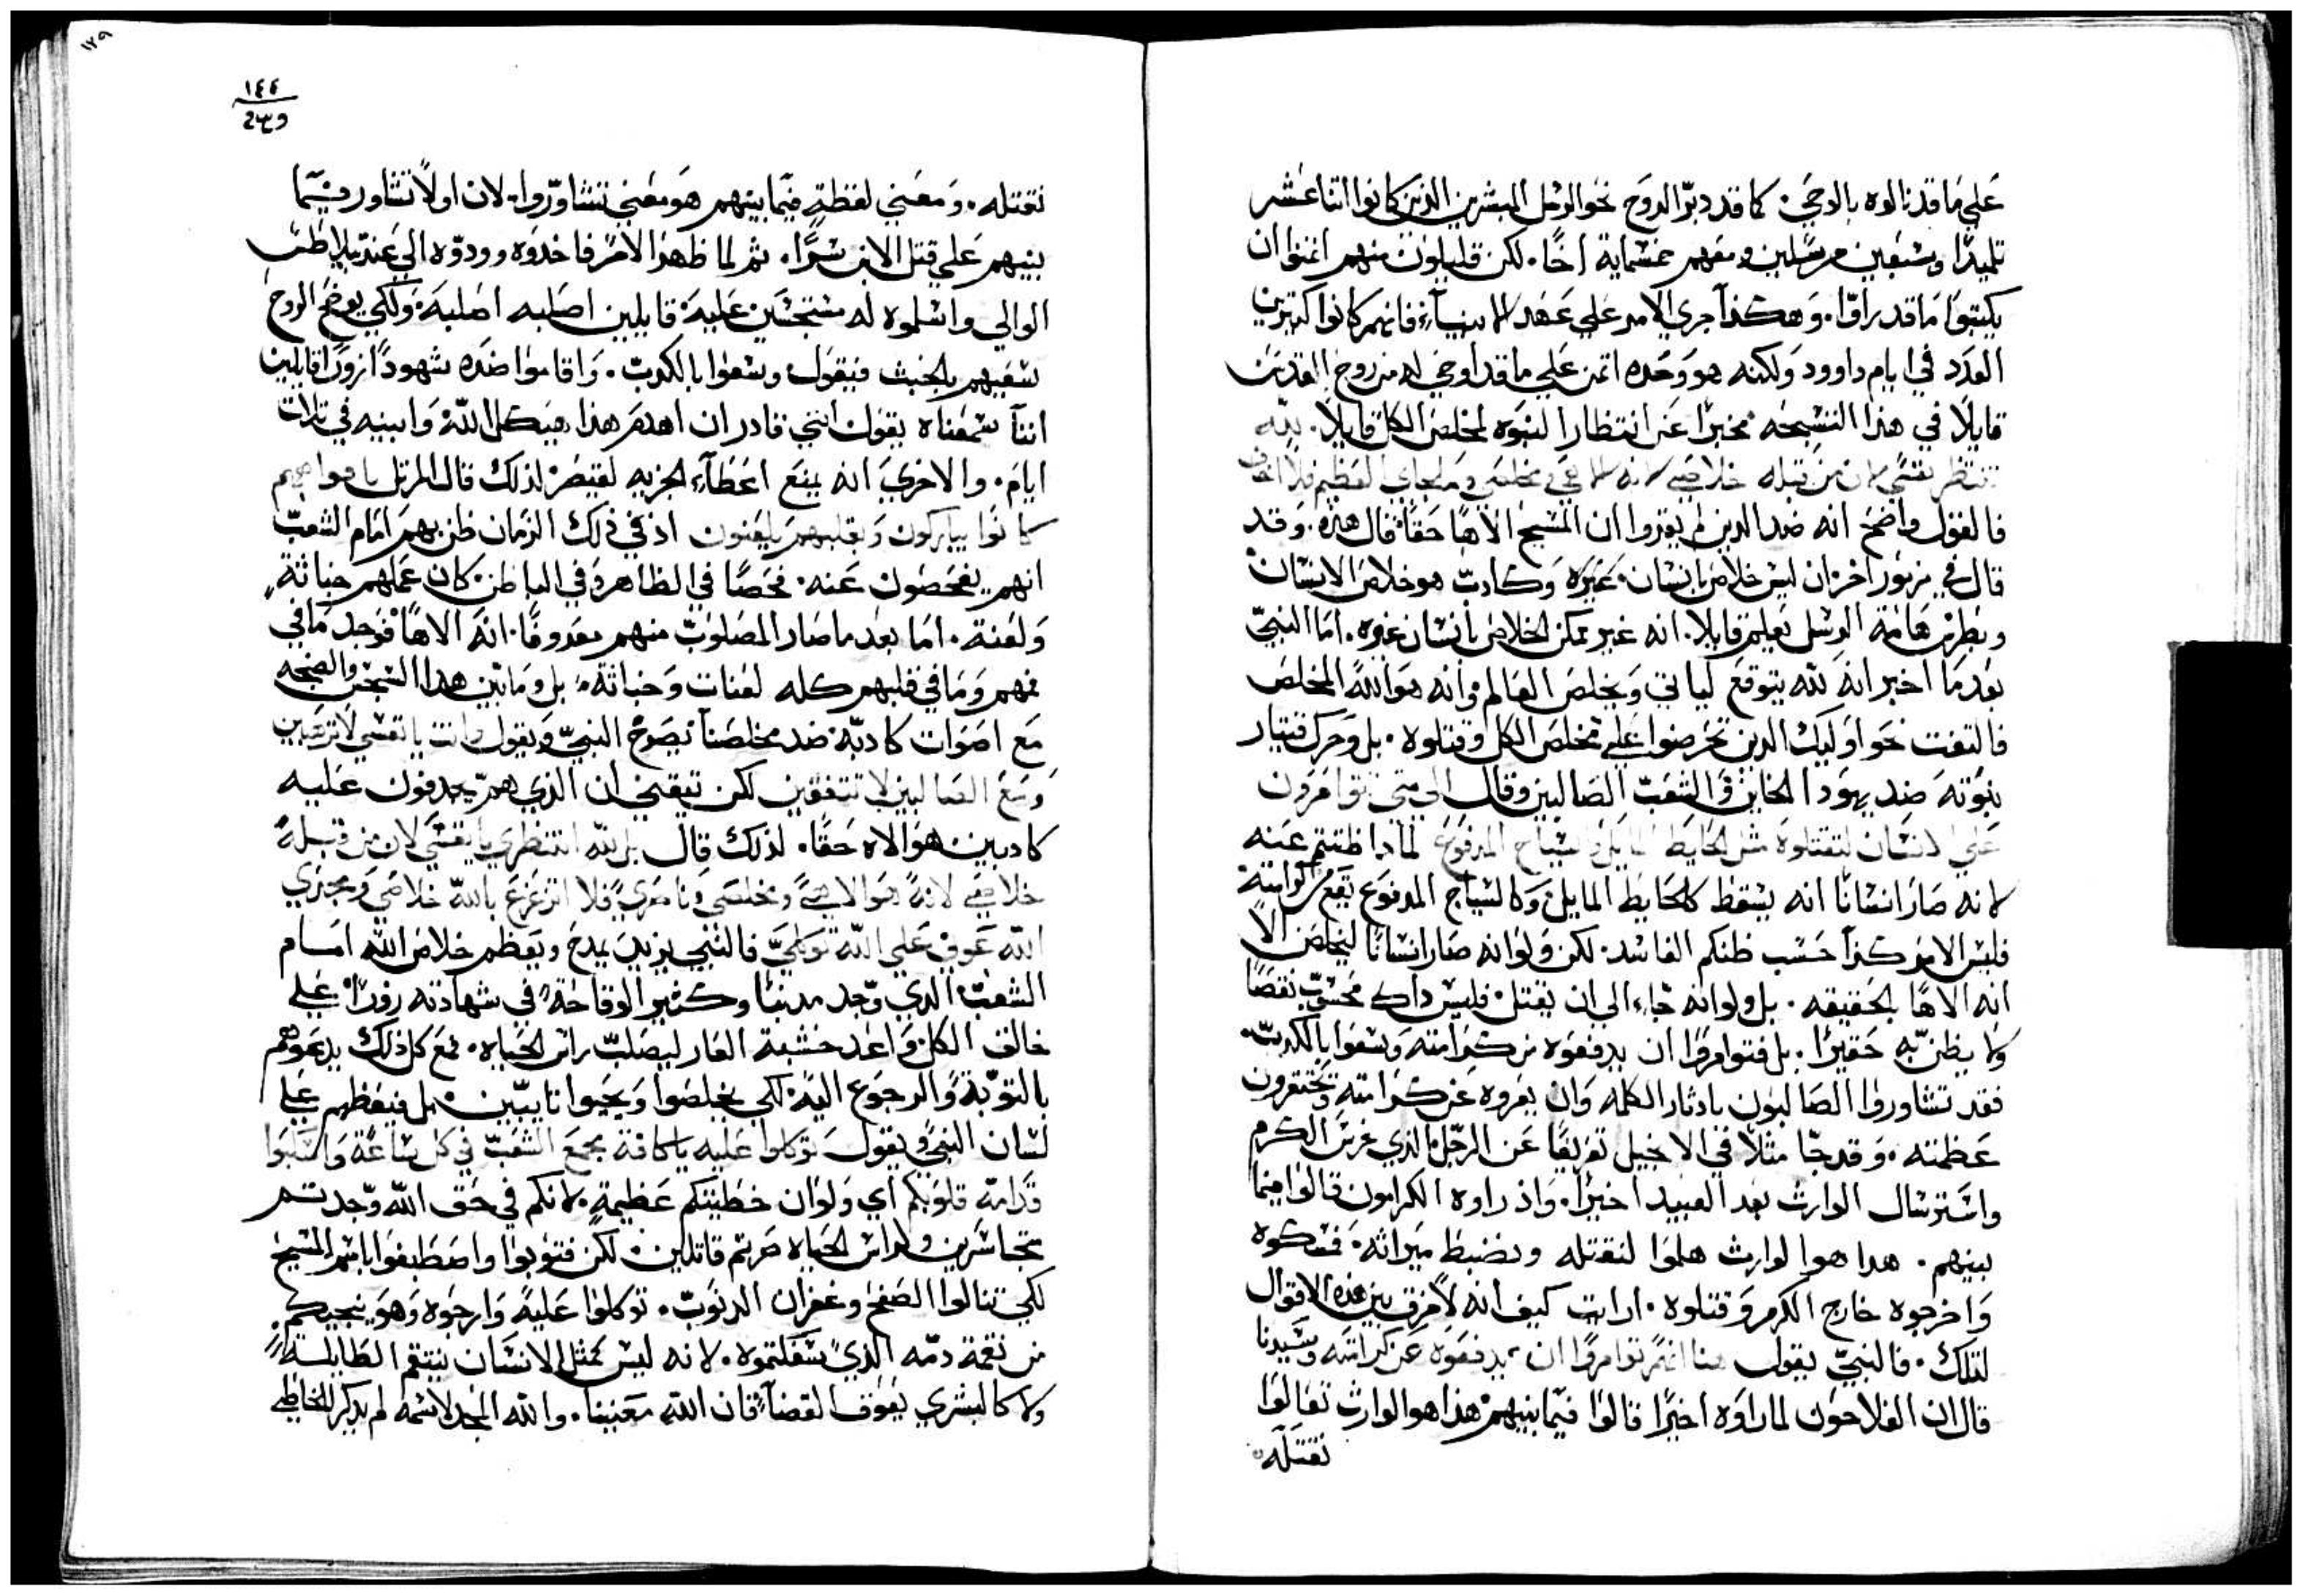 علي ما قد نالوه بالوحي. كما قد دبّر الروح نحو الرسل المبشرين الذين كانوا اتناعشر
تلميدًا وسبعين مرسلين ومعهم خمسماية اخًا. لكن قليلون منهم اتمنوا ان
يكتبوا ما قد راوّا. وهكذا جري الامر علي عهد الانبيآء فانهم كانوا كتيرين
العدد في ايام داوود ولكنه هو وحده اتمن علي ما قد اوحي له من روح القدس
قايلاً في هذا التسبحه مخبرًا عن انتظار النبوه لمخلص الكل قايلاً. للّه
تنتظر نفسي لان من قبله خلاصي لانه الاهي ومخلصي وملجاي العظيم فلا
فالقول واضح انه ضد الدين لم يقروا ان المسيح الاهًا حقًا قال هذه. وقد
قال في مزمور اخر ان ليس خلاص بانسان غيره وكادبّ هو خلاص الانسان
وبطرس هامة الرسل يعلم قايلاً. انه غير ممكن الخلاص بانسان غيره. اما النبيّ
بعد ما اخبر انه للّه يتوقع لياتي ويخلص العالم وانه هو اللّه المخلص
فالتفت نحو اوليك الدين تحرضوا علي مخلص الكل وقتلوه. بل وحرك قيتار
نبوّته ضد يهودا الخاين والشعبّ الصالبين وقال الي متي تتوامرون
علي الانسان لتقتلوه مثل الحايط المايل والسياج المدفوع لمادا ظننتم عنه
لانه صار انسانًا انه يسقط كالحايط المايل وكالسياج المدفوع يقع من كرامته
فليس الامر كذا حسب ظنكم الفاسد. لكن ولو انه صار انسانًا ليخلص الا
انه الاهًا بالحقيقه. بل ولو انه جاء الي ان يقتل فليس داك محسوبّ نقصًا
ولا يظن به حقيرًا. بل فتوامروا ان يدفعوه من كرامته وسعوا بالكدبّ.
فقد تشاوروا الصالبون بادثار الكلمه وان يعروه عن كرامته ويحتقرون
عظمته. وقد جّا مثلاً في الانجيل تعريفًا عن الرجّل الذي غرس الكرم
واسترسال الوارث بعد العبيد اخيرًا. واذ راوه الكرامون قالوا فيما
بينهم. هدا هوا لوارث هلموا لنقتله ونضبط ميراثه. فمسكوه
واخرجوه خارج الكرم وقتلوه. ارايت كيف انه لا فرق بين هذه الاقوال
لتلك. فالنبيّ يقول هنا انهم توامروا ان يدفعوه عن كرامته وسيدنا
قال ان الفلاحون لما راوه اخيرًا قالوا فيما بينهم هذا هو الوارث تعالوا
نقتله
١٢٩
١٤٤
نقتله. ومعني لفظة فيما بينهم هو معني تشاورّوا. لان اولاً تشاور فيما
بينهم علي قتل الابن سرًّا. ثم لما ظهر الامر فاخدوه وودّوه الي عند بيلاطس
الوالي واسلموه له مستجسين عليه قايلين اصلبه اصلبه. ولكي يوضح الروح
سعيهم بالخبث فيقول وسعوا بالكدبّ. واقاموا ضده شهودًا زورًا قايلين
اننا سمعناه يقول انني قادر ان اهدم هذا هيكل اللّه وابنيه في تلات
ايام. والاخري انه يمنع اعطآء الجزيه لقيصر لذلك قال المرتل بافواههم
كانوا يباركون وبقلبهم يلعنون اذ في ذلك الزمان ظن بهم امام الشعبّ
انهم يفحصون عنه. فحصًا في الظاهر وفي الباطن كان عملهم خباثة
ولعنة. اما بعد ما صار المصلوبّ منهم معدومًا. انه الاهًا فوجد ما في
فمهم وما في قلبهم كله لعنات وخباثة. بل وما بين هدا السجّس والضجه
مع اصوات كادبّه ضد مخلصنا يصرخ النبيّ ويقول وانت يا نفسي لا ترتضين
ومع الصالبين لا تتفقين لكن تيقني ان الذي هم يجدفون عليه
كادبين هو الاه حقًا. لذلك قال بل للّه انتظري يا نفسي لان من قبله
خلاصي لانه هوالاهي ومخلصي وناصري فلا اتزعزع باللّه خلاصي ومجدي
اللّه عوني علي اللّه توكلي فالنبي يزيد يمدح ويعظم خلاص اللّه امام
الشعبّ الذي وجد مدنبًا وكثير الوقاحة في شهادته زورًا علي
خالق الكل واعد خشبة العار ليصلبّ راس الحياه. فمع كل ذلك يدعوهم
بالتوبة والرجوع اليه. لكي يخلصوا ويحيوا تايبّين. بل فيعظهم علي
لسان النبي ويقول توكلوا عليه يا كافة مجمع الشعبّ في كل ساعة واسكبوا
قدامه قلوبكم اي ولو ان خطيتكم عظيمة لانكم في حق اللّه وجدتم
متجاسرين ولراس الحياه صرتم قاتلين. لكن فتوبوا واصطبغوا باسم المسيح
لكي تنالوا الصفح وغفران الدنوبّ. توكلوا عليه وارجوه وهو ينجيكم
من نقمة دمّه الذي سفكتموه. لانه ليس كمثل الانسان ينتقم الطايلسه
ولا كالبشري يعوق القضآء فان اللّه معيننا. واللّه المجد لاسمه لم يدكر للخاطي